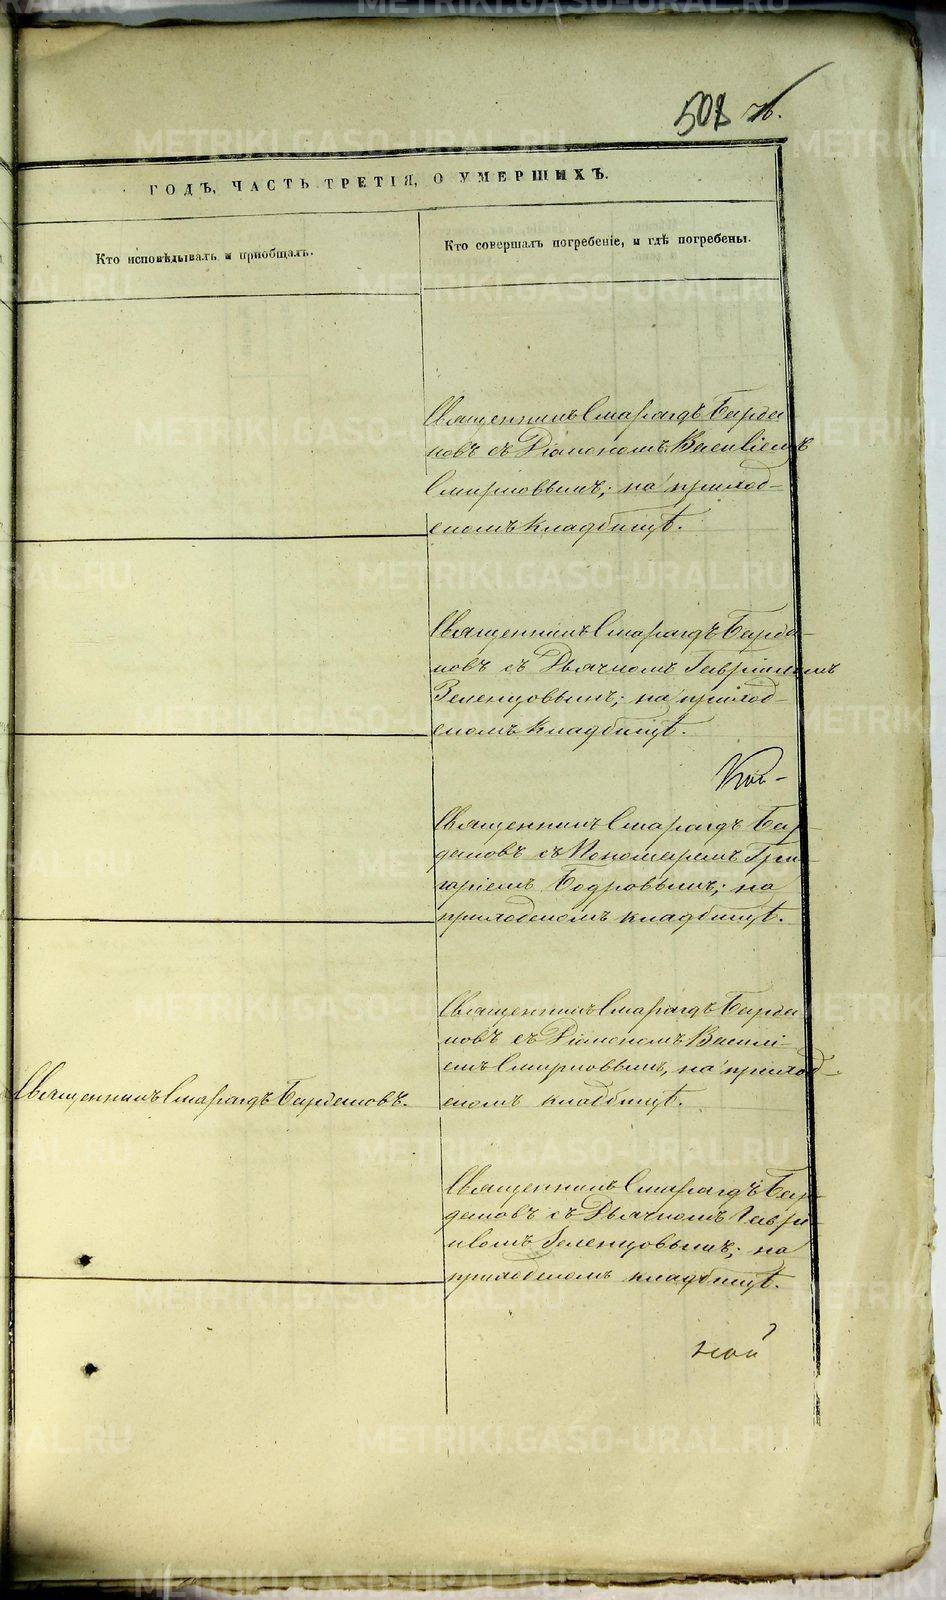 508 76.
ГОДЪ, ЧАСТЬ ТРЕТІЯ, О УМЕРШИХЪ.
Кто исповѣдывалъ и приобщалъ.
Кто совершалъ погребеніе, и гдѣ погребены.
Священникъ Смарагдъ Бирде
новъ съ Діакономъ Василіемъ
Смирновымъ; на приход-
скомъ кладбищѣ.
Священникъ Смарагдъ Бирде-
новъ съ Дьячкомъ Гавріиломъ
Зеленцовымъ; на приход-
скомъ кладбищѣ.
Священникъ Смарагдъ Бир-
деновъ съ Пономаремъ Гри-
горіемъ Бодровымъ; на
приходскомъ кладбищѣ.
Священникъ Смарагдъ Бирде
новъ съ Діакономъ Василі-
емъ Смирновымъ, на приход-
скомъ кладбищѣ.
Священникъ Смарагдъ Бирденовъ.
Священникъ Смарагдъ Бир-
деновъ съ Дьячкомъ Гаврі-
иломъ Зеленцовымъ; на
приходскомъ кладбищѣ.
ной
METRIKI.GASO-URAL.RU